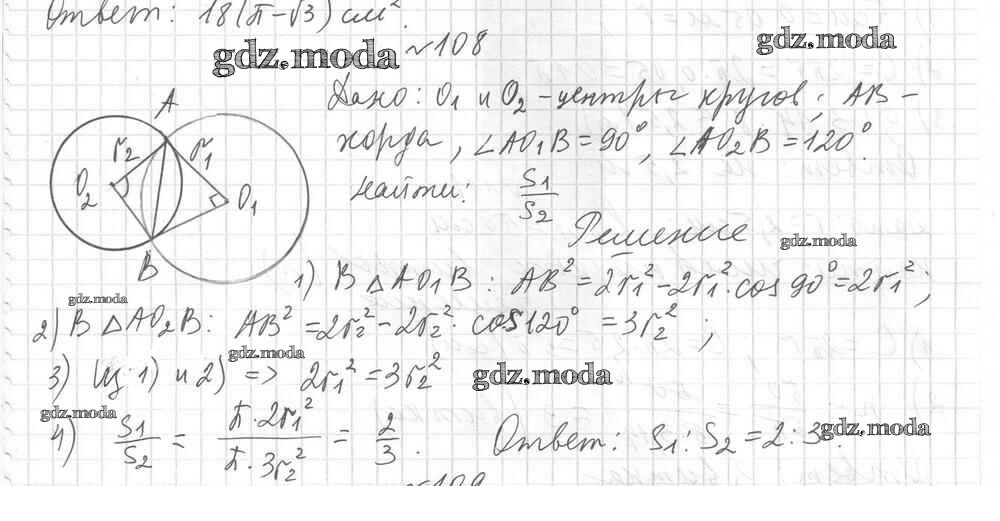 Ответ: 18(π-√3) см².
gdz.moda
№108
gdz.moda
Дано: O₁ и O₂ - центры кругов, AB -
хорда, ∠AO₁B = 90°, ∠AO₂B = 120°.
Найти: S₁/S₂
Решение
gdz.moda
A
r₂ r₁
O₂ O₁
B
1) В △AO₁B: AB² = 2r₁² - 2r₁²·cos 90° = 2r₁²;
gdz.moda
2) В △AO₂B: AB² = 2r₂² - 2r₂²· cos 120° = 3r₂²;
gdz.moda
3) Из 1) и 2) => 2r₁² = 3r₂²
gdz.moda
gdz.moda
4) S₁/S₂ = π·2r₁²/π·3r₂² = 2/3.
Ответ: S₁:S₂ = 2:3
gdz.moda
№109